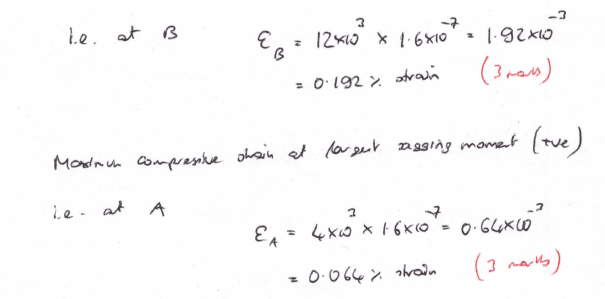 i.e. at B ε_B = 12×10³ × 1.6×10⁻⁷ = 1.92×10⁻³
= 0.192 % strain (3 marks)
Maximum compressive strain at largest sagging moment (+ve)
i.e. at A
ε_A = 4×10³ × 1.6×10⁻⁷ = 0.64×10⁻³
= 0.064 % strain (3 marks)